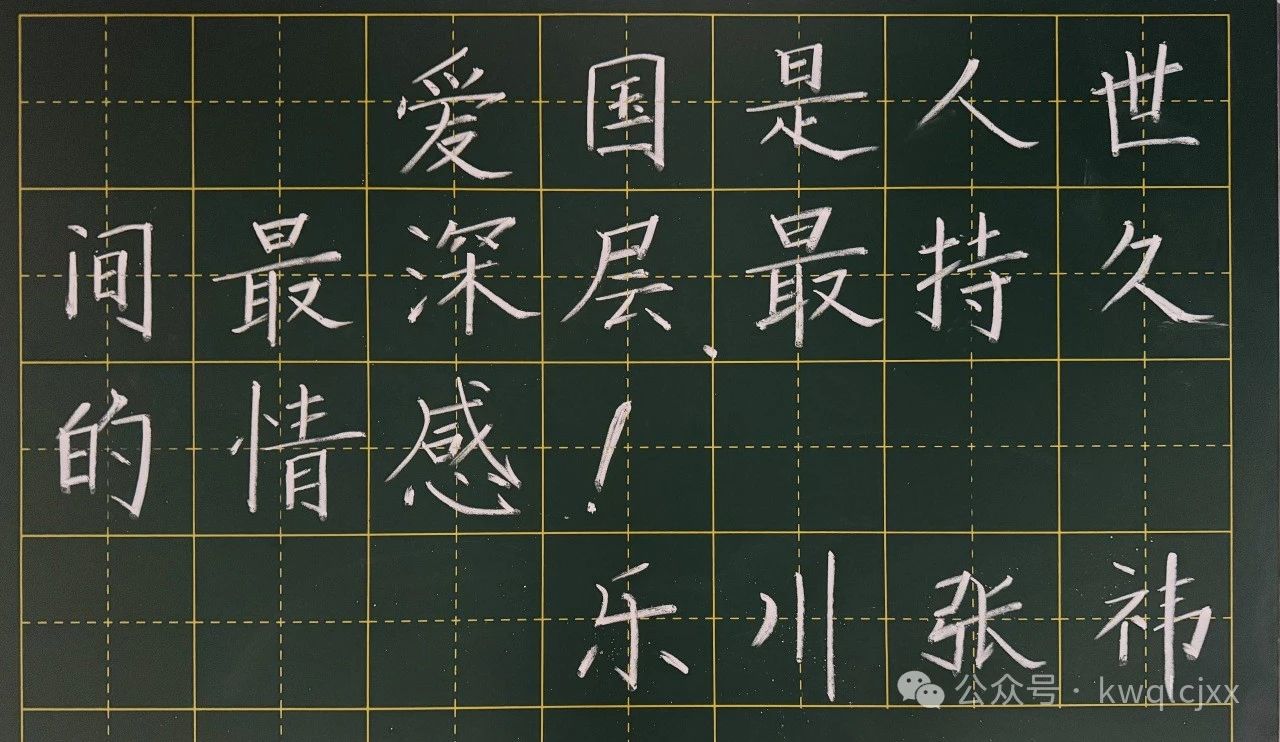 爱国是人世
间最深层、最持久
的情感！
乐川张祎
公众号·kwqlcjxx